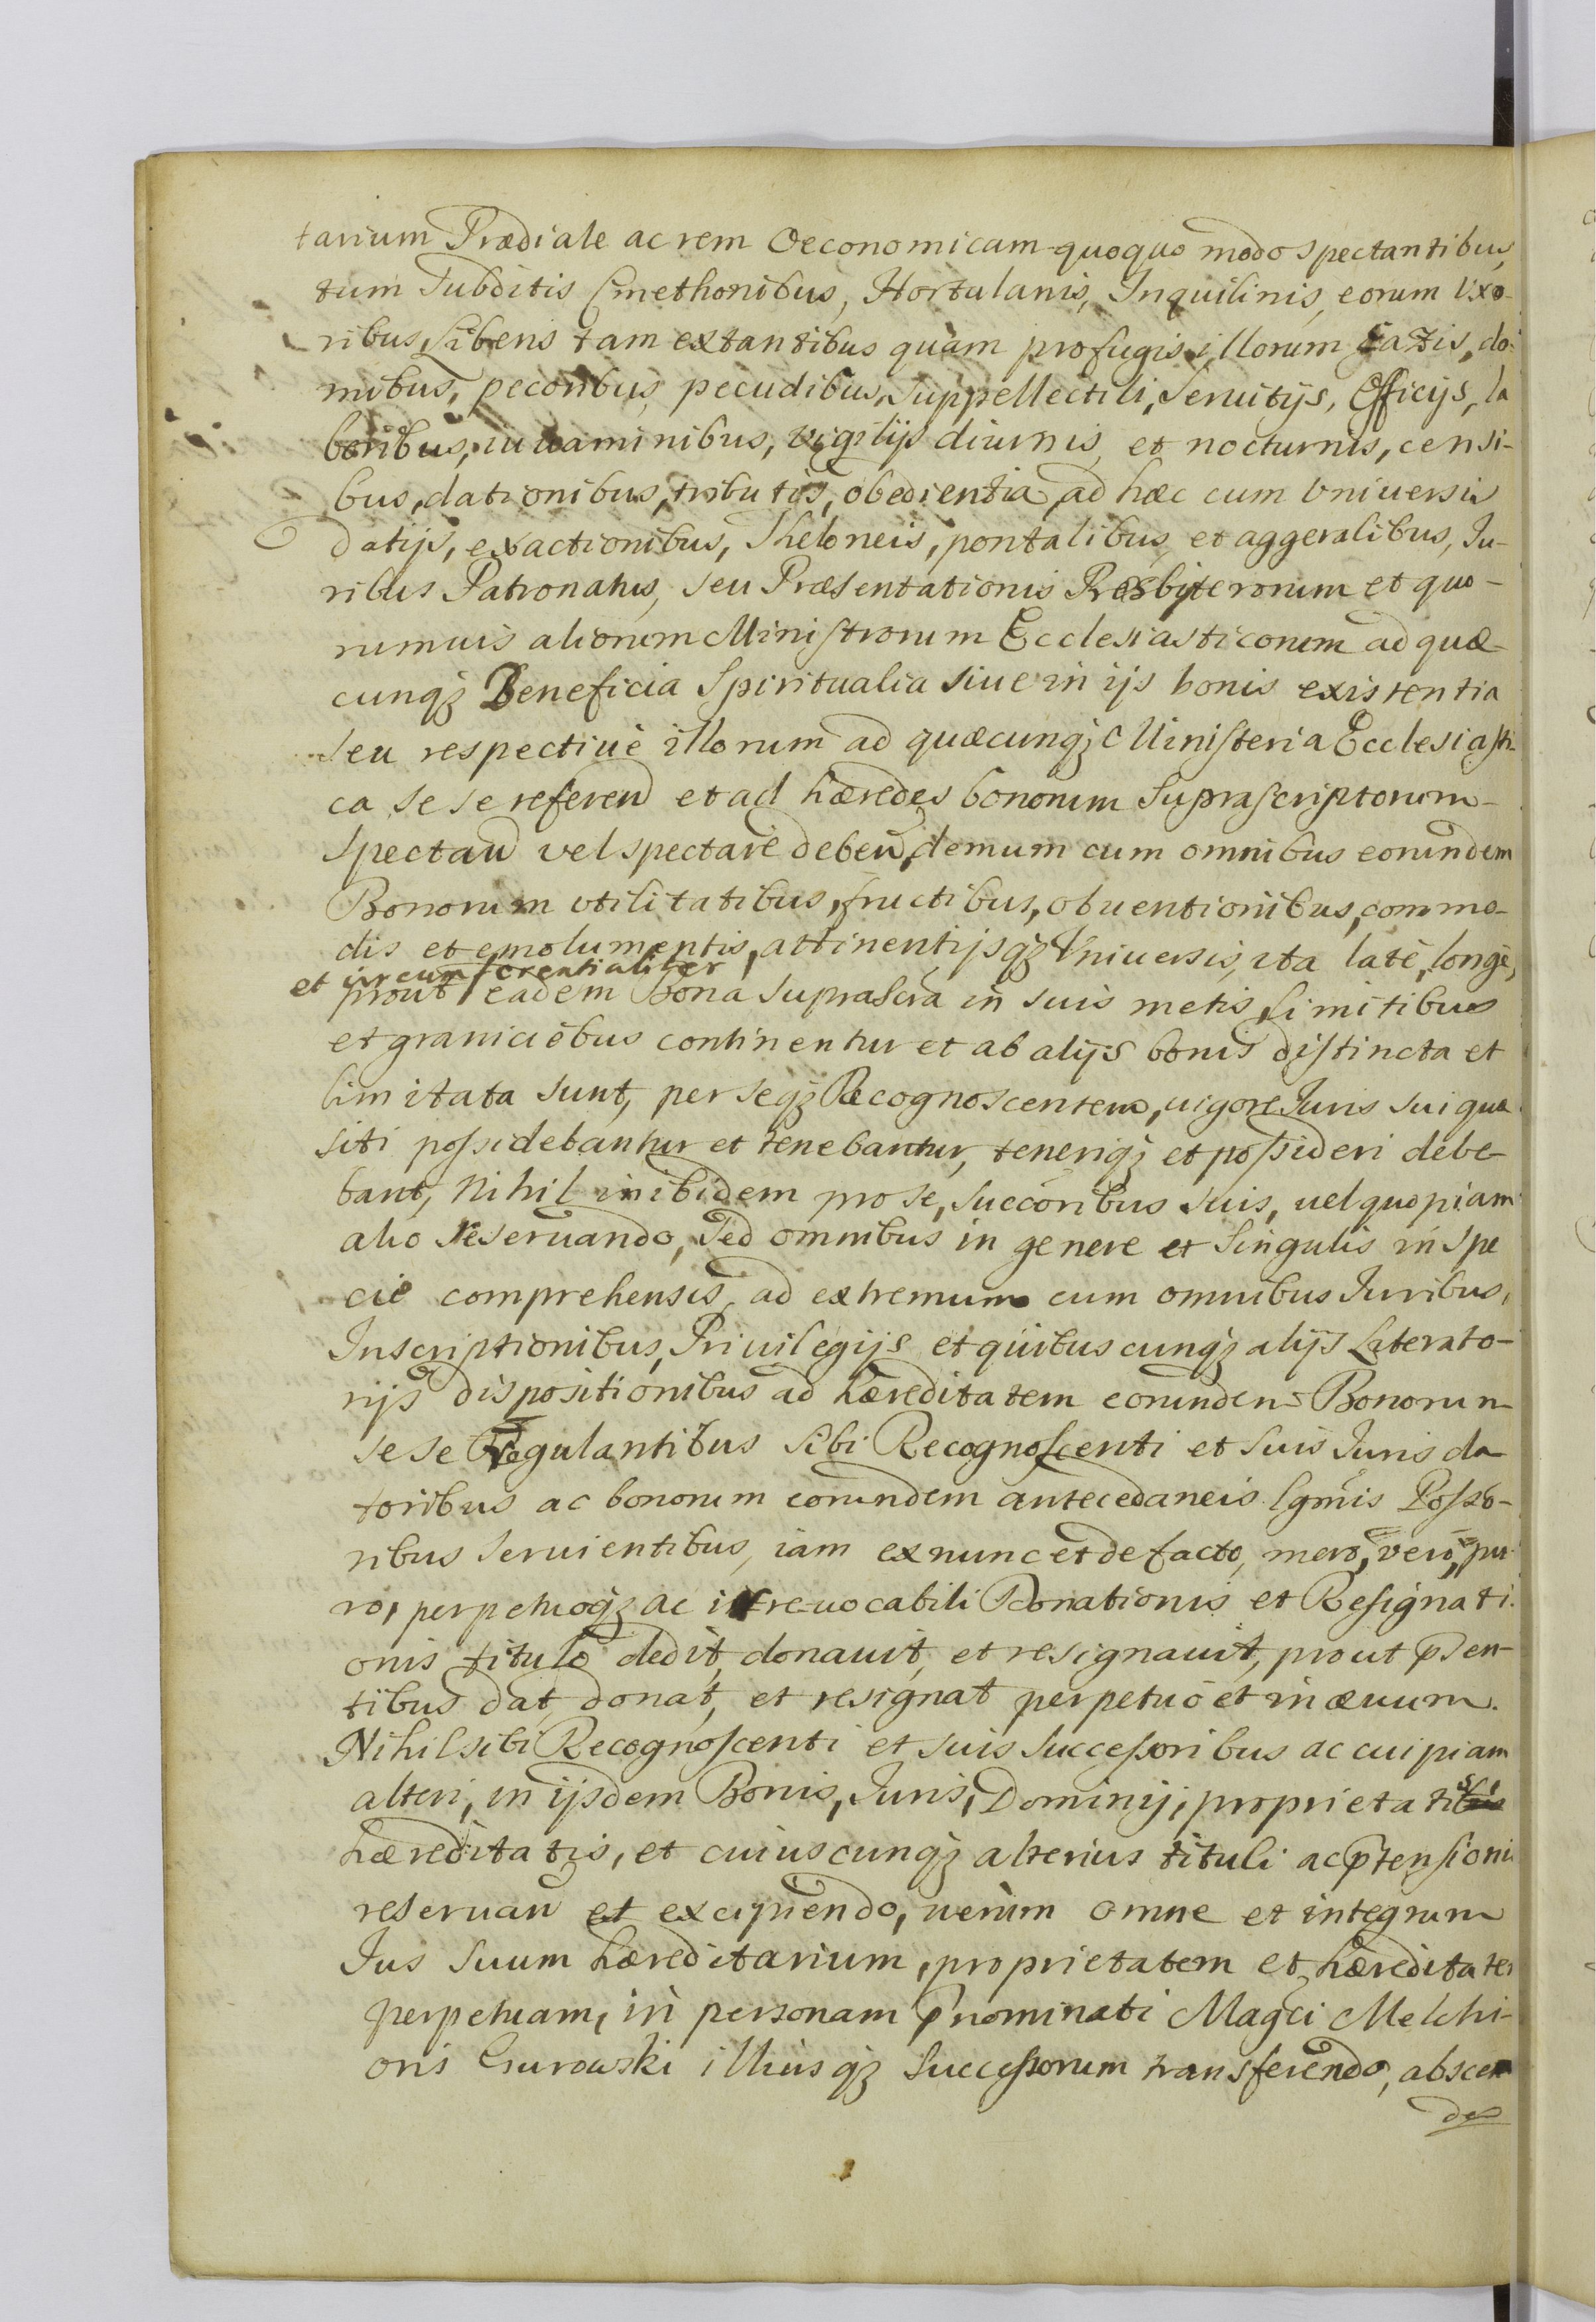 tarium Prædiale ac rem Oeconomicam quoquo modo spectantibus,
tum Subditis Cmethonibus, Hortulanis, Inquilinis, eorum Uxo-
ribus, Liberis tam extantibus quàm profugis, illorum Gazis, do-
mibus, pecoribus, pecudibus, Suppellectili, Seruitijs, Officijs, la
boribus, iuuaminibus, vigilijs diurnis et nocturnis, censi-
bus, dationibus, tributis, obedientia, ad hæc cum Vniuersis
datijs, exactionibus, Theloneis, pontalibus, et aggeralibus, Iu-
ribus Patronatus, seu Præsentationis Presbyterorum et quo-
rumuis aliorum Ministrorum Ecclesiasticorum ad quæ-
cunq3 Beneficia Spiritualia siue in ijs bonis existentia
seu respectiuè illorum ad quæcunq3 Ministeria Ecclesiasti-
ca sese referen et ad hæredes bonorum Suprascriptorum
spectan vel spectare deben, demum cum omnibus eorundem
Bonorum vtilitatibus, fructibus, obuentionibus, commo-
dis et emolumentis, attinentijsq3 Vniuersis, ita latè, longè,
et circumferentialiter
prout eadem Bona suprascra in suis metis, limitibus
et graniciebus continentur et ab alijs bonis distincta et
limitata sunt, per seq3 Recognoscentem, uigore Iuris sui quæ
siti possidebantur et tenebantur, teneriq3 et possideri debe-
bant, Nihil inibidem pro se, succoribus suis, uel quopiam
alio reseruando, Sed omnibus in genere et singulis in spe
cie comprehensis, ad extremum cum omnibus Iuribus,
Inscriptionibus, Priuilegijs et quibuscunq3 alijs Literato-
rijs dispositionibus ad hæreditatem eorundem Bonorum
sese regulantibus sibi Recognoscenti et suis Iuris da
toribus ac bonorum eorundem antecedaneis lgmis Posso-
ribus seruientibus, iam ex nunc et de facto, mero, vero, pu-
ro, perpetuoq3 ac irreuocabili Donationis et Resignati-
onis titulo dedit, donauit, et resignauit, prout p̃sen-
tibus dat, donat, et resignat perpetuo et in æuum.
Nihil sibi Recognoscenti et suis successoribus ac cuipiam
alteri, in ijsdem Bonis, Iuris, Dominij, proprietatis,
hæreditatis, et cuiuscunq3 alterius tituli ac p̃tensionis
reseruan et excipiendo, uerùm omne et integrum
Ius suum hæreditarium, proprietatem et hæreditatem
perpetuam, in personam p̃nominati Magci Melchi-
oris Gurowski illiusq3 Successorum transferendo, abscen
des